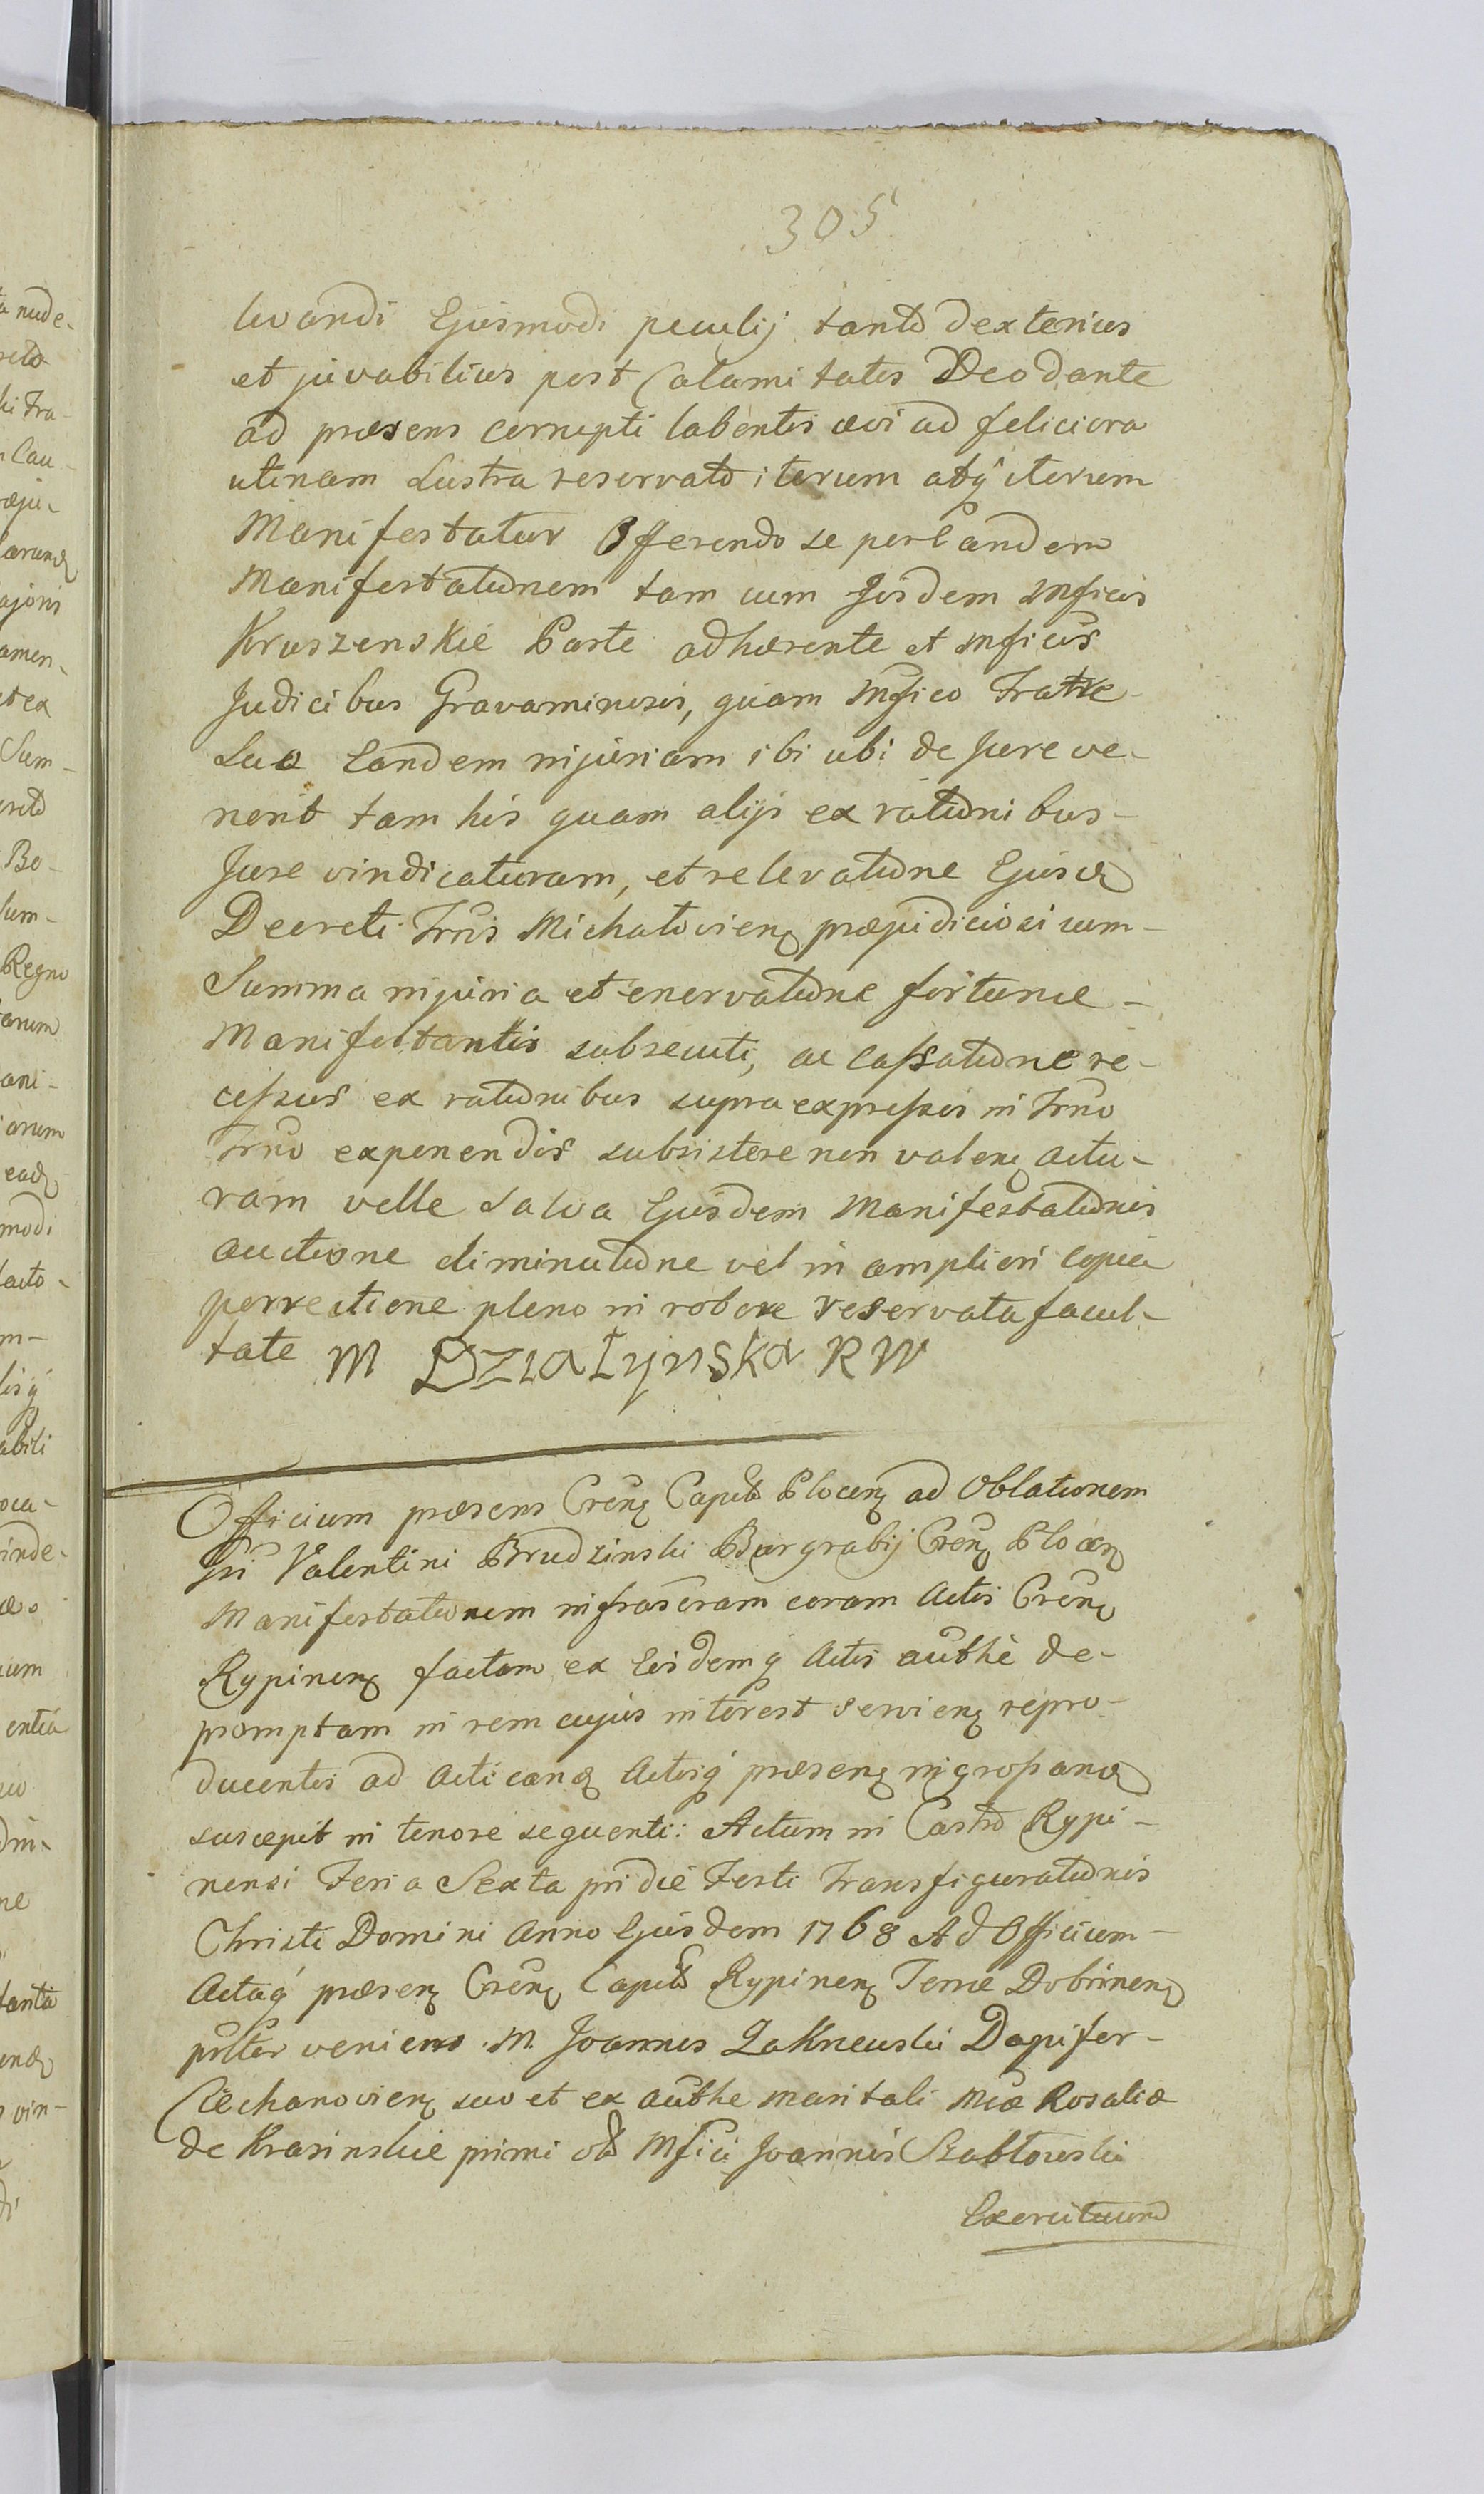 305
luandi Ejusmodi peculij tanto dexterius
et juvabilius post Calamitates Deo dante
ad præsens corrupti labentis ævi ad feliciora
utinam Lustra reservato iterum atq̃ iterum
Manifestatur Offerendo se per Eandem
Manifestationem tam cum Jisdem Mficis
Kruszenskie Parte adhærente et Mficis
Judicibus Gravaminosis, quam Mfico Fratre
Suo Eandem injuriam ibi ubi de Jure ve-
nerit tam his quam alijs ex rationibus
Jure vindicaturam, et relevatione Ejusd
Decreti Trlis Michałovien præjudiciosi cum
Summa injuria et enervatione fortunæ
Manifestantis subsecuti, ac Cassatione re-
cessus ex rationibus supra expressis in Trno
Trno exponendis subsistere non valen actu-
ram velle Salva Ejusdem Manifestationis
auctione diminutione vel in ampliori copia
porrectione pleno in robore reservata facul-
tate M Działyńska R W
Officium præsens Cren Capit Plocen ad Oblationem
Valentini Brudzinski Burgrabij Cren Plocen
Manifestationem infrascram coram Actis Cren
Rypinen factam ex Eisdemq̃ Actis authe de-
promptam in rem cujus interest servien repro-
ducentis ad acticand Actisq̃ præsen ingrossand
suscepit in tenore sequenti: Actum in Castro Rypi-
nensi Feria Sexta pridie Festi Transfigurationis
Christi Domini Anno Ejusdem 1768 Ad Officium
Actaq̃ præsen Cren Capit Rypinen Terræ Dobrinen
pslter veniens M. Joannes Zakrzewski Dapifer
Ciechanovien suo et ex authe maritali Mcæ Rosaliæ
de Krasinskie primi oti Mfici Joannis Szabłowski
Exercituum